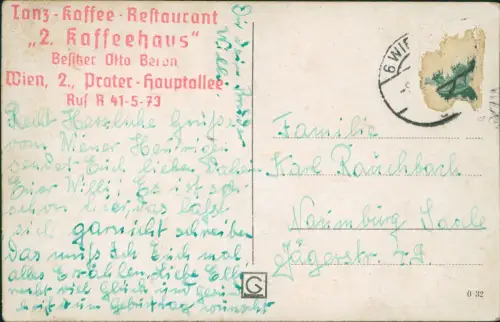 Tanz-Kaffee-Restaurant
„2. Kaffeehaus"
Besitzer Otto Beron
Wien, 2., Prater-Hauptallee
Ruf R 41-5-73
Recht Herzliche Grüße
vom Wiener Heurigen
sendet Euch lieben
Euer Willi! Es ist sehr
schön hier, das läßt
sich garnicht schreiben
Das muß ich Euch mal
alles Erzählen. Liebe
recht viel Glück und
zum Geburtag wünscht
Willi
6 WIE
Familie
Karl Rauchbach
Naumburg Saale
Jägerstr.
G
0 32